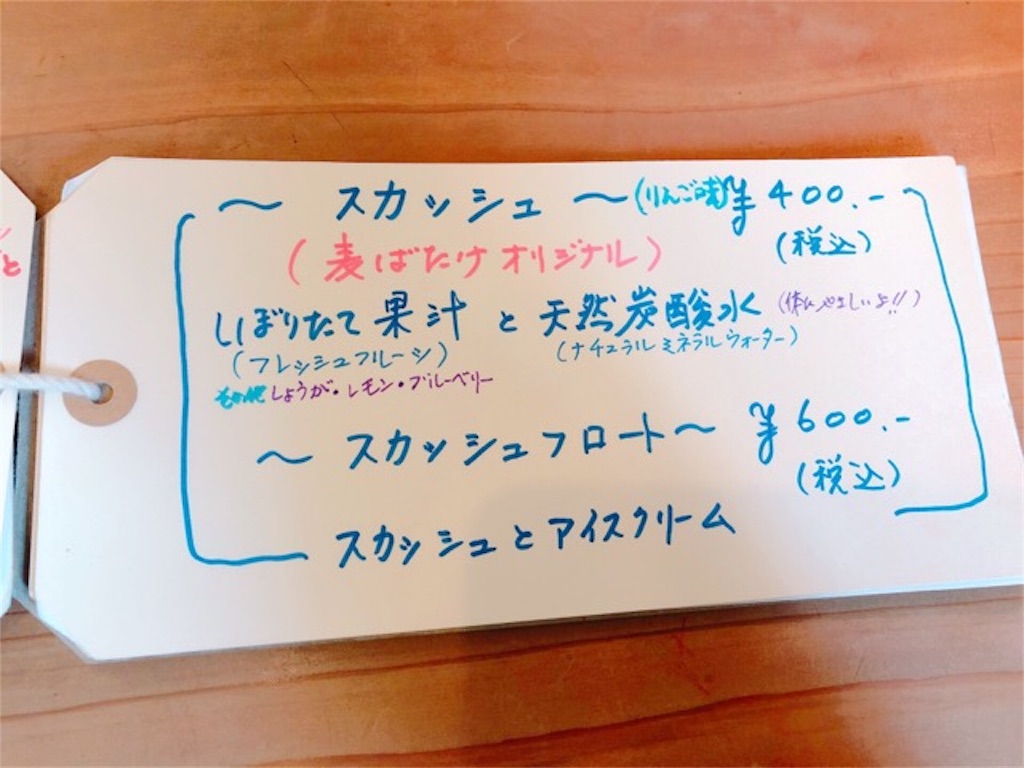 ～ スカッシュ ～(りんご味) ¥400.-
(税込)
(麦ばたけオリジナル)
しぼりたて果汁 と 天然炭酸水 (体にやさしいよ!!)
(フレッシュフルーツ) (ナチュラルミネラルウォーター)
その他 しょうが・レモン・ブルーベリー
～ スカッシュフロート～ ¥600.-
(税込)
スカッシュとアイスクリーム
と